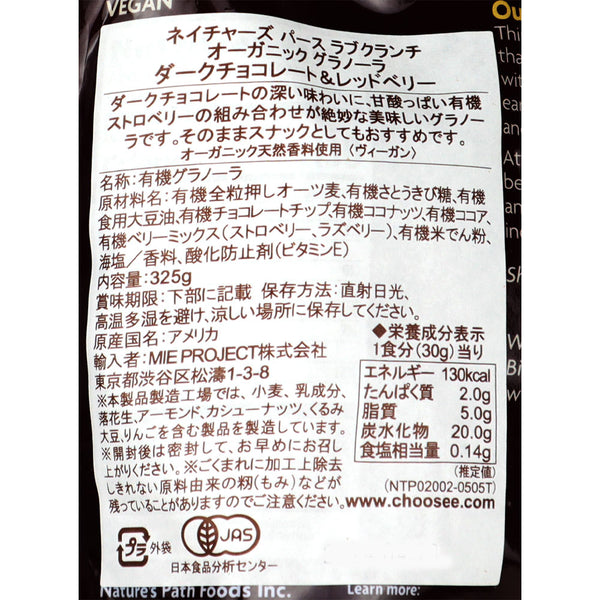 VEGAN
ネイチャーズ パース ラブクランチ
オーガニック グラノーラ
ダークチョコレート&レッドベリー
ダークチョコレートの深い味わいに、甘酸っぱい有機
ストロベリーの組み合わせが絶妙な美味しいグラノー
ラです。そのままスナックとしてもおすすめです。
オーガニック天然香料使用〈ヴィーガン〉
名称:有機グラノーラ
原材料名:有機全粒押しオーツ麦、有機さとうきび糖、有機
食用大豆油、有機チョコレートチップ、有機ココナッツ、有機ココア、
有機ベリーミックス(ストロベリー、ラズベリー)、有機米でん粉、
海塩/香料、酸化防止剤(ビタミンE)
内容量:325g
賞味期限:下部に記載 保存方法:直射日光、
高温多湿を避け、涼しい場所に保存してください。
原産国名:アメリカ
輸入者:MIE PROJECT株式会社
東京都渋谷区松濤1-3-8
※本製品製造工場では、小麦、乳成分、
落花生、アーモンド、カシューナッツ、くるみ
大豆、りんごを含む製品を製造しています。
※開封後は密封して、お早めにお召し
上がりください。※ごくまれに加工上除去
しきれない原料由来の籾(もみ)などが
残っていることがありますのでご注意ください。
◆栄養成分表示
1食分(30g)当り
エネルギー 130kcal
たんぱく質 2.0g
脂質 5.0g
炭水化物 20.0g
食塩相当量 0.14g
(推定値)
(NTP02002-0505T)
www.choosee.com
プラ 外袋
JAS
日本食品分析センター
Nature's Path Foods Inc.
Learn more:
Ou
Thi
tha
wit
ear
and
At
be
an
in
Sh
W
Bi
w